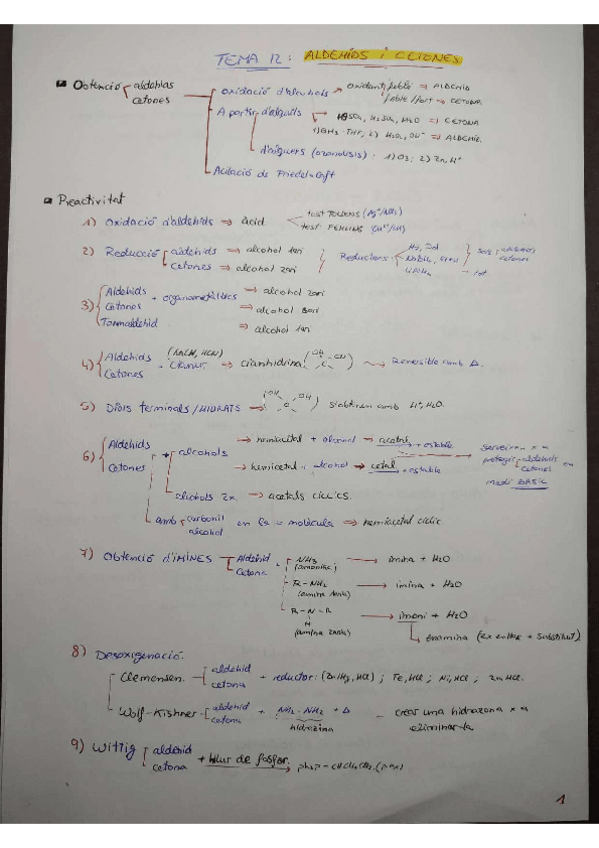 TEMA 12: ALDEHÍDS I CETONES
Obtenció aldehids
cetones
Oxidació d'alcohols → oxidant feble ⇒ ALDEHID
feble/fort ⇒ CETONA
A partir d'alquils → HgSO4, H2SO4, H2O ⇒ CETONA
1) BH3·THF, 2) H2O2, OH⁻ ⇒ ALDEHID
d'alquens (ozonolisis): 1) O3; 2) Zn, H⁺
Acilació de Friedel-Craft
Reactivitat
1) Oxidació d'aldehids ⇒ àcid test TOLLENS
test FEHLING
2) Reducció aldehids ⇒ alcohol 1ari
cetones ⇒ alcohol 2ari
Reductors
3) Aldehids
Cetones + organometàl·lics
Formaldehid
→ alcohol 2ari
⇒ alcohol 3ari
⇒ alcohol 1ari
4) Aldehids (KCN, HCN)
Cetones + cianur → cianhidrina (OH CN C) Reversible amb Δ.
5) Diols terminals/HIDRATS → (OH OH C) s'obtenen amb H⁺, H2O.
6) Aldehids
Cetones
+ alcohols
→ hemiacetal + alcohol → acetal + estable
→ hemicetal + alcohol → cetal + estable
serveixen x a
protegir aldehids
cetones en
medi BÀSIC
alcohols 2x → acetals cíclics.
amb carbonil
alcohol en la = molècula ⇒ hemiacetal cíclic
7) Obtenció d'IMINES Aldehid
Cetona
+ NH3 → imina + H2O
(amoníac)
R-NH2 → imina + H2O
(amina 1ària)
R-N-R → imoni + H2O
H
(amina 2ària)
enamina
8) Desoxigenació.
Clemensen. aldehid
cetona + reductor: (Zn/Hg, HCl); Fe, HCl; Ni, HCl; Zn, HCl.
Wolf-Kishner aldehid
cetona + NH2-NH2 + Δ
hidrazina
crear una hidrazona x a
eliminar-la
9) Wittig aldehid
cetona + Illur de fosfor.
1